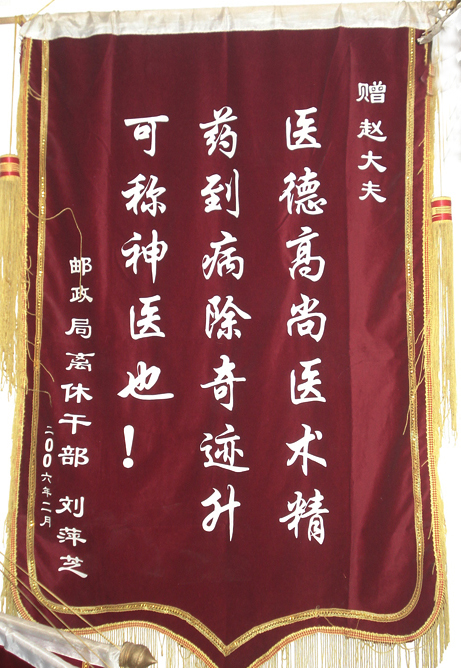 赠赵大夫
医德高尚医术精
药到病除奇迹升
可称神医也!
邮政局离休干部 刘萍芝
二〇〇六年二月